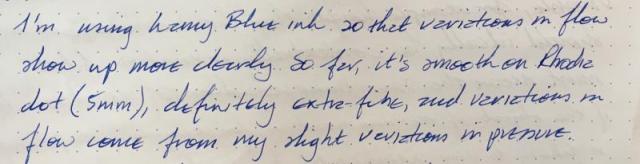 I'm using Lamy Blue ink so that variations in flow
show up more clearly. So far, it's smooth on Rhodia
dot (5mm), definitely extra-fine, and variations in
flow come from my slight variations in pressure.